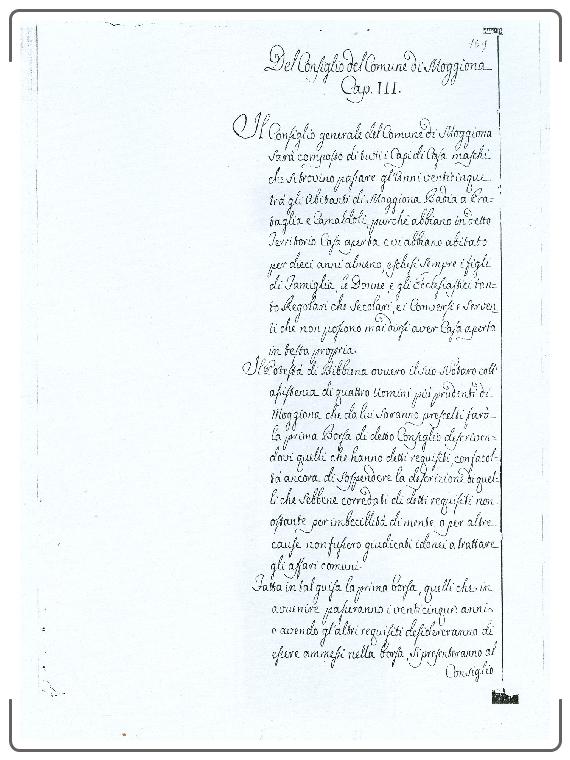 Del Consiglio del Comune di Moggiona
Cap. III.
Il Consiglio generale del Comune di Moggiona
sarà composto di tutti i Capi di Casa maschi
che si trovino passare gl'anni venticinque
trà gli Abitanti di Moggiona Badia a Pra=
taglia e Camaldoli, purchè abbiano in detto
Territorio Casa aperta e vi abbiano abitato
per dieci anni almeno, esclusi sempre i figli
di Famiglia, le Donne, e gli Ecclesiastici tan=
to Regolari che Secolari, e i Conversi e Serven=
ti che non possono mai dirsi aver Casa aperta
in testa propria.
Il Potestà di Bibbiena ovvero il suo Notaro coll'
assistenza di quattro Uomini più prudenti di
Moggiona che da lui saranno prescelti farà
la prima Borsa di detto Consiglio descriven=
dovi quelli che hanno detti requisiti con facol=
tà ancora di sospendere la descrizione di quel=
li che sebbene corredati di detti requisiti non
ostante per imbecillità di mente, o per altre
cause non fussero giudicati idonei a trattare
gli affari comuni.
Fatta in tal guisa la prima borsa, quelli che in
avvenire passeranno i venticinque anni
e avendo gl'altri requisiti desidereranno di
essere ammessi nella borsa, si presenteranno al
Consiglio